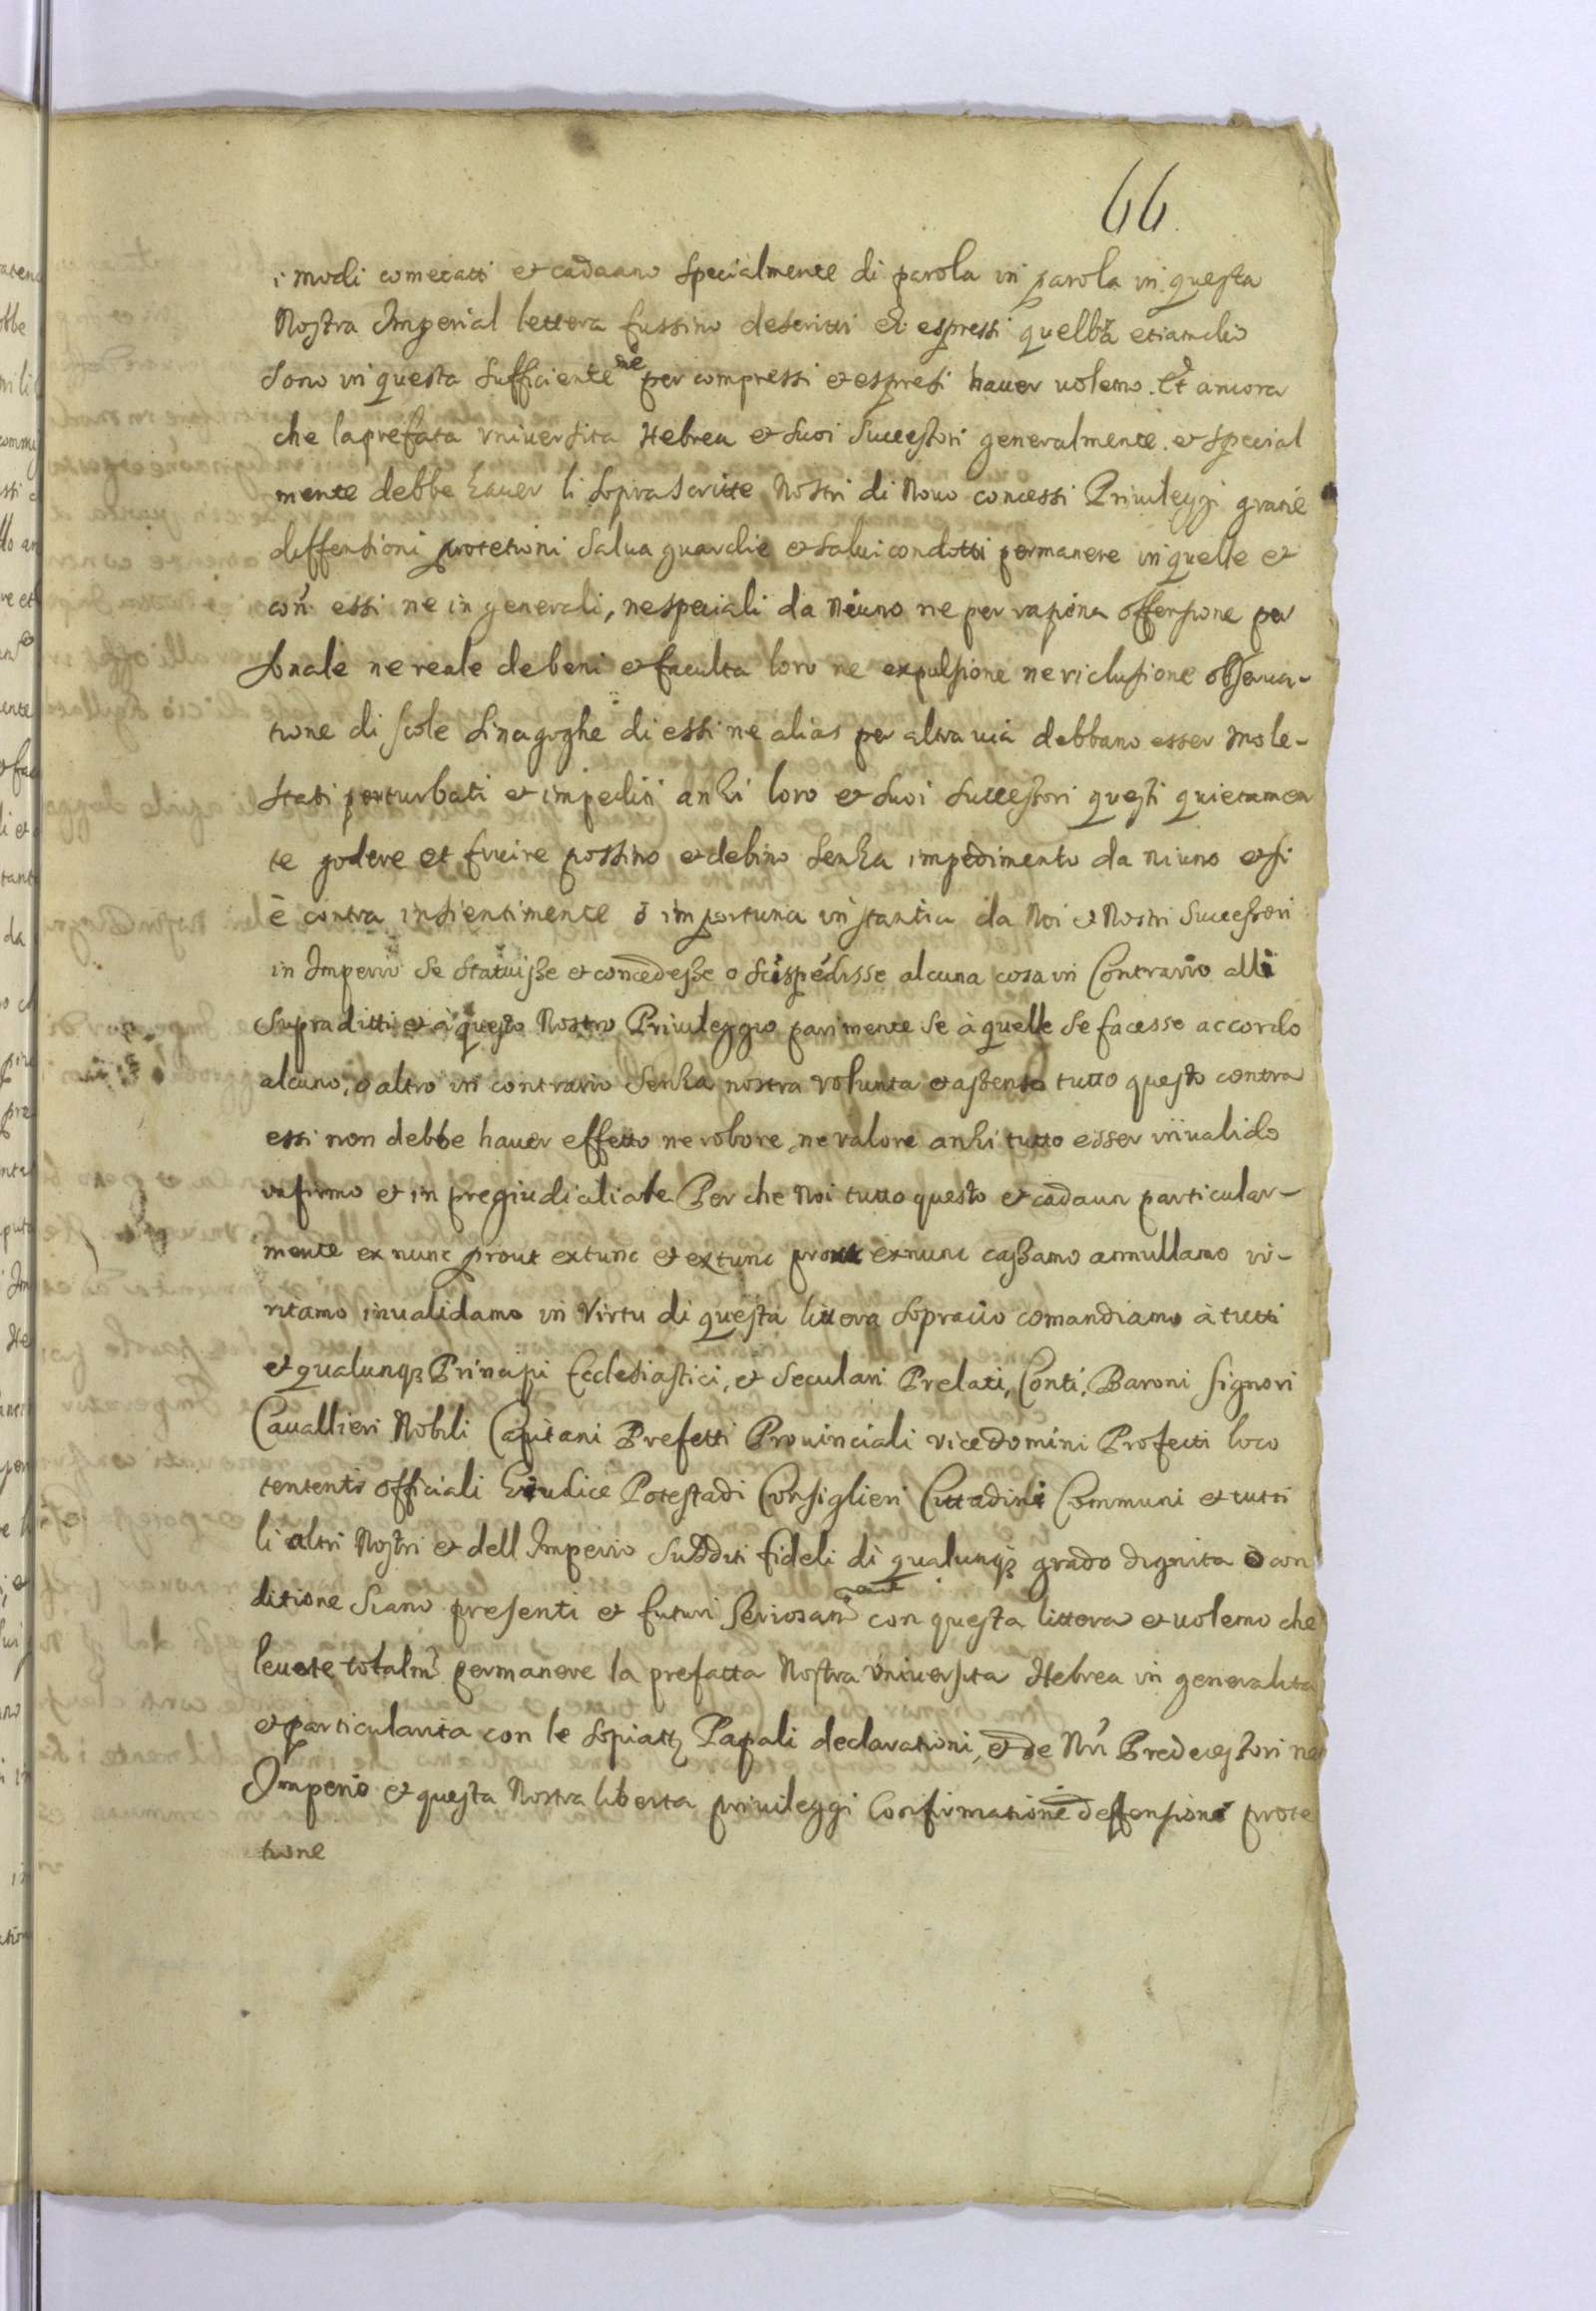 66.
i modi come tatti et cadauno specialmente di parola in parola in questa
Nostra Imperial lettera fussino descritti et espressi quelli etiamdio
sono in questa sufficiente ne per compressi et espresi hauer uolemo. Et ancora
che la prefata vniuersita Hebrea et suoi Successori generalmente. et special
mente debbe hauer li soprascritte Nostri di Nouo concessi Priuileggi gratie
deffensioni protetioni salua guardie et salui condotti permanere in quelle et
con essi ne in generali, ne speciali da niuno ne per rapina offensione per
sonale ne reale de beni et faculta loro ne expulsione ne riclusione obserua-
tione di scole sinagoghe di essi ne alias per altra uia debbano esser mole-
stati perturbati et impediti anzi loro et suoi successori questi quietamen
te godere et fruire possino et debino senza impedimento da niuno et si
è contra insientimente ò importuna instantia da Noi et Nostri Successori
in Imperio se statuisse et concedesse o suspédisse alcuna cosa in Contrario alli
supraditti et à questo Nostro Priuileggio parimente se à quelle se facesse accordo
alcuno, o altro in contrario senza nostra volunta et assenso tutto questo contra
essi non debbe hauer effetto ne robore ne valore anzi tutto esser inualido
infirmo et in pregiudiciliate Per che Noi tutto questo et cadaun particular-
mente ex nunc prout extunc et extunc prout exnunc cassamo annullamo vi-
ntiamo inualidamo in Virtu di questa littera sopraciò comandiamo à tutti
et qualunq3 Principi Ecclesiastici, et seculari Prelati, Conti, Baroni signori
Cauallieri Nobili Capitani Prefetti Prouinciali vicedomini Profecti loco
tententi officiali Giudice Potestadi Consiglieri Cittadini Communi et tutti
li altri Nostri et dell Imperio sudditi fideli di qualunq3 grado dignita ò con
ditione siano presenti et futuri seriosam con questa littera et uolemo che
leuete totalm.e permanere la prefatta Nostra vniuersita Hebrea in generalita
et particularita con le Papali declarationi, et de Nri Predecessori ne
Imperio et questa Nostra liberta priuileggi Confirmatione deffensione prote
tione